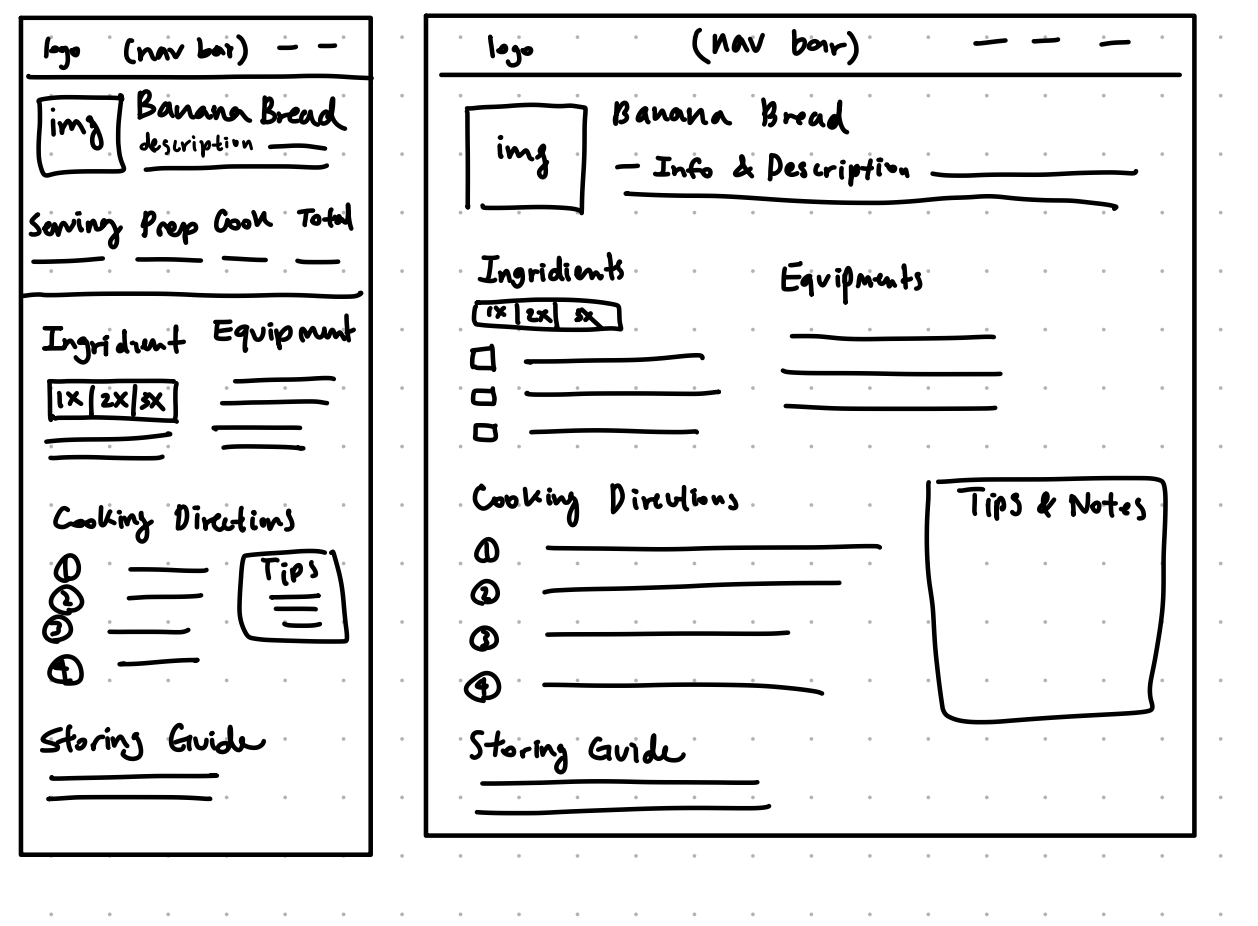 logo (nav bar)
img
Banana Bread
description
Serving Prep Cook Total
Ingridient Equipment
1X 2X 3X
Cooking Directions
1
2
3
4
Tips
Storing Guide
logo (nav bar)
img
Banana Bread
- Info & Description
Ingridients Equipments
1X 2X 3X
Cooking Directions
1
2
3
4
Tips & Notes
Storing Guide